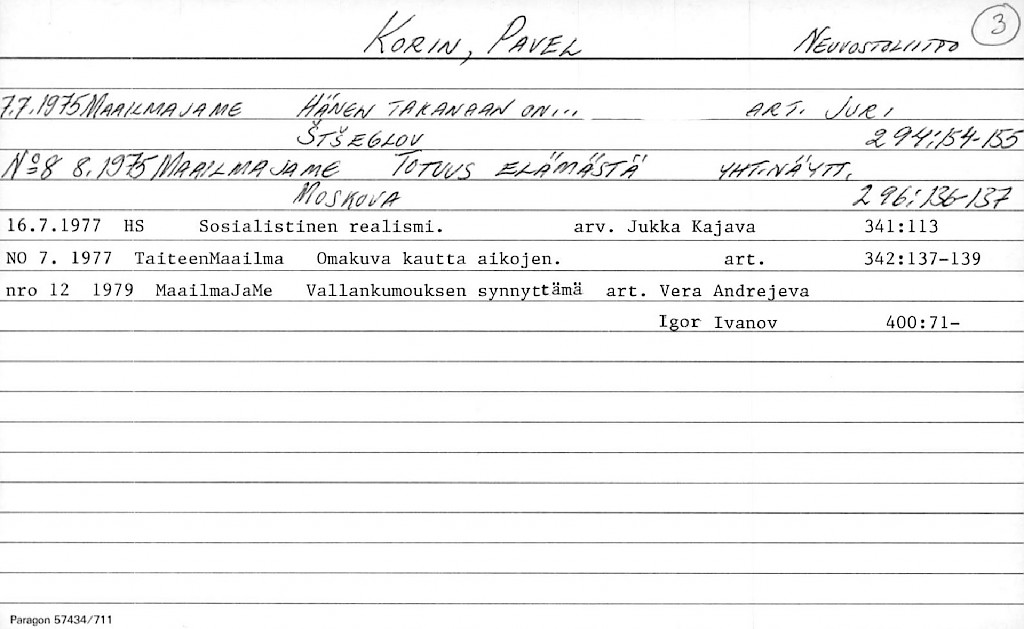 KORIN, PAVEL NEUVOSTOLIITTO 3
7.7.1975 MAAILMA JA ME HÄNEN TAKANAAN ON... ART. JURI
ŠTŠEGLOV 294:154-155
No 8 8.1975 MAAILMA JA ME TOTUUS ELÄMÄSTÄ YHT.NÄYTT.
MOSKOVA 296:136-137
16.7.1977 HS Sosialistinen realismi. arv. Jukka Kajava 341:113
NO 7. 1977 TaiteenMaailma Omakuva kautta aikojen. art. 342:137-139
nro 12 1979 MaailmaJaMe Vallankumouksen synnyttämä art. Vera Andrejeva
Igor Ivanov 400:71-
Paragon 57434/711